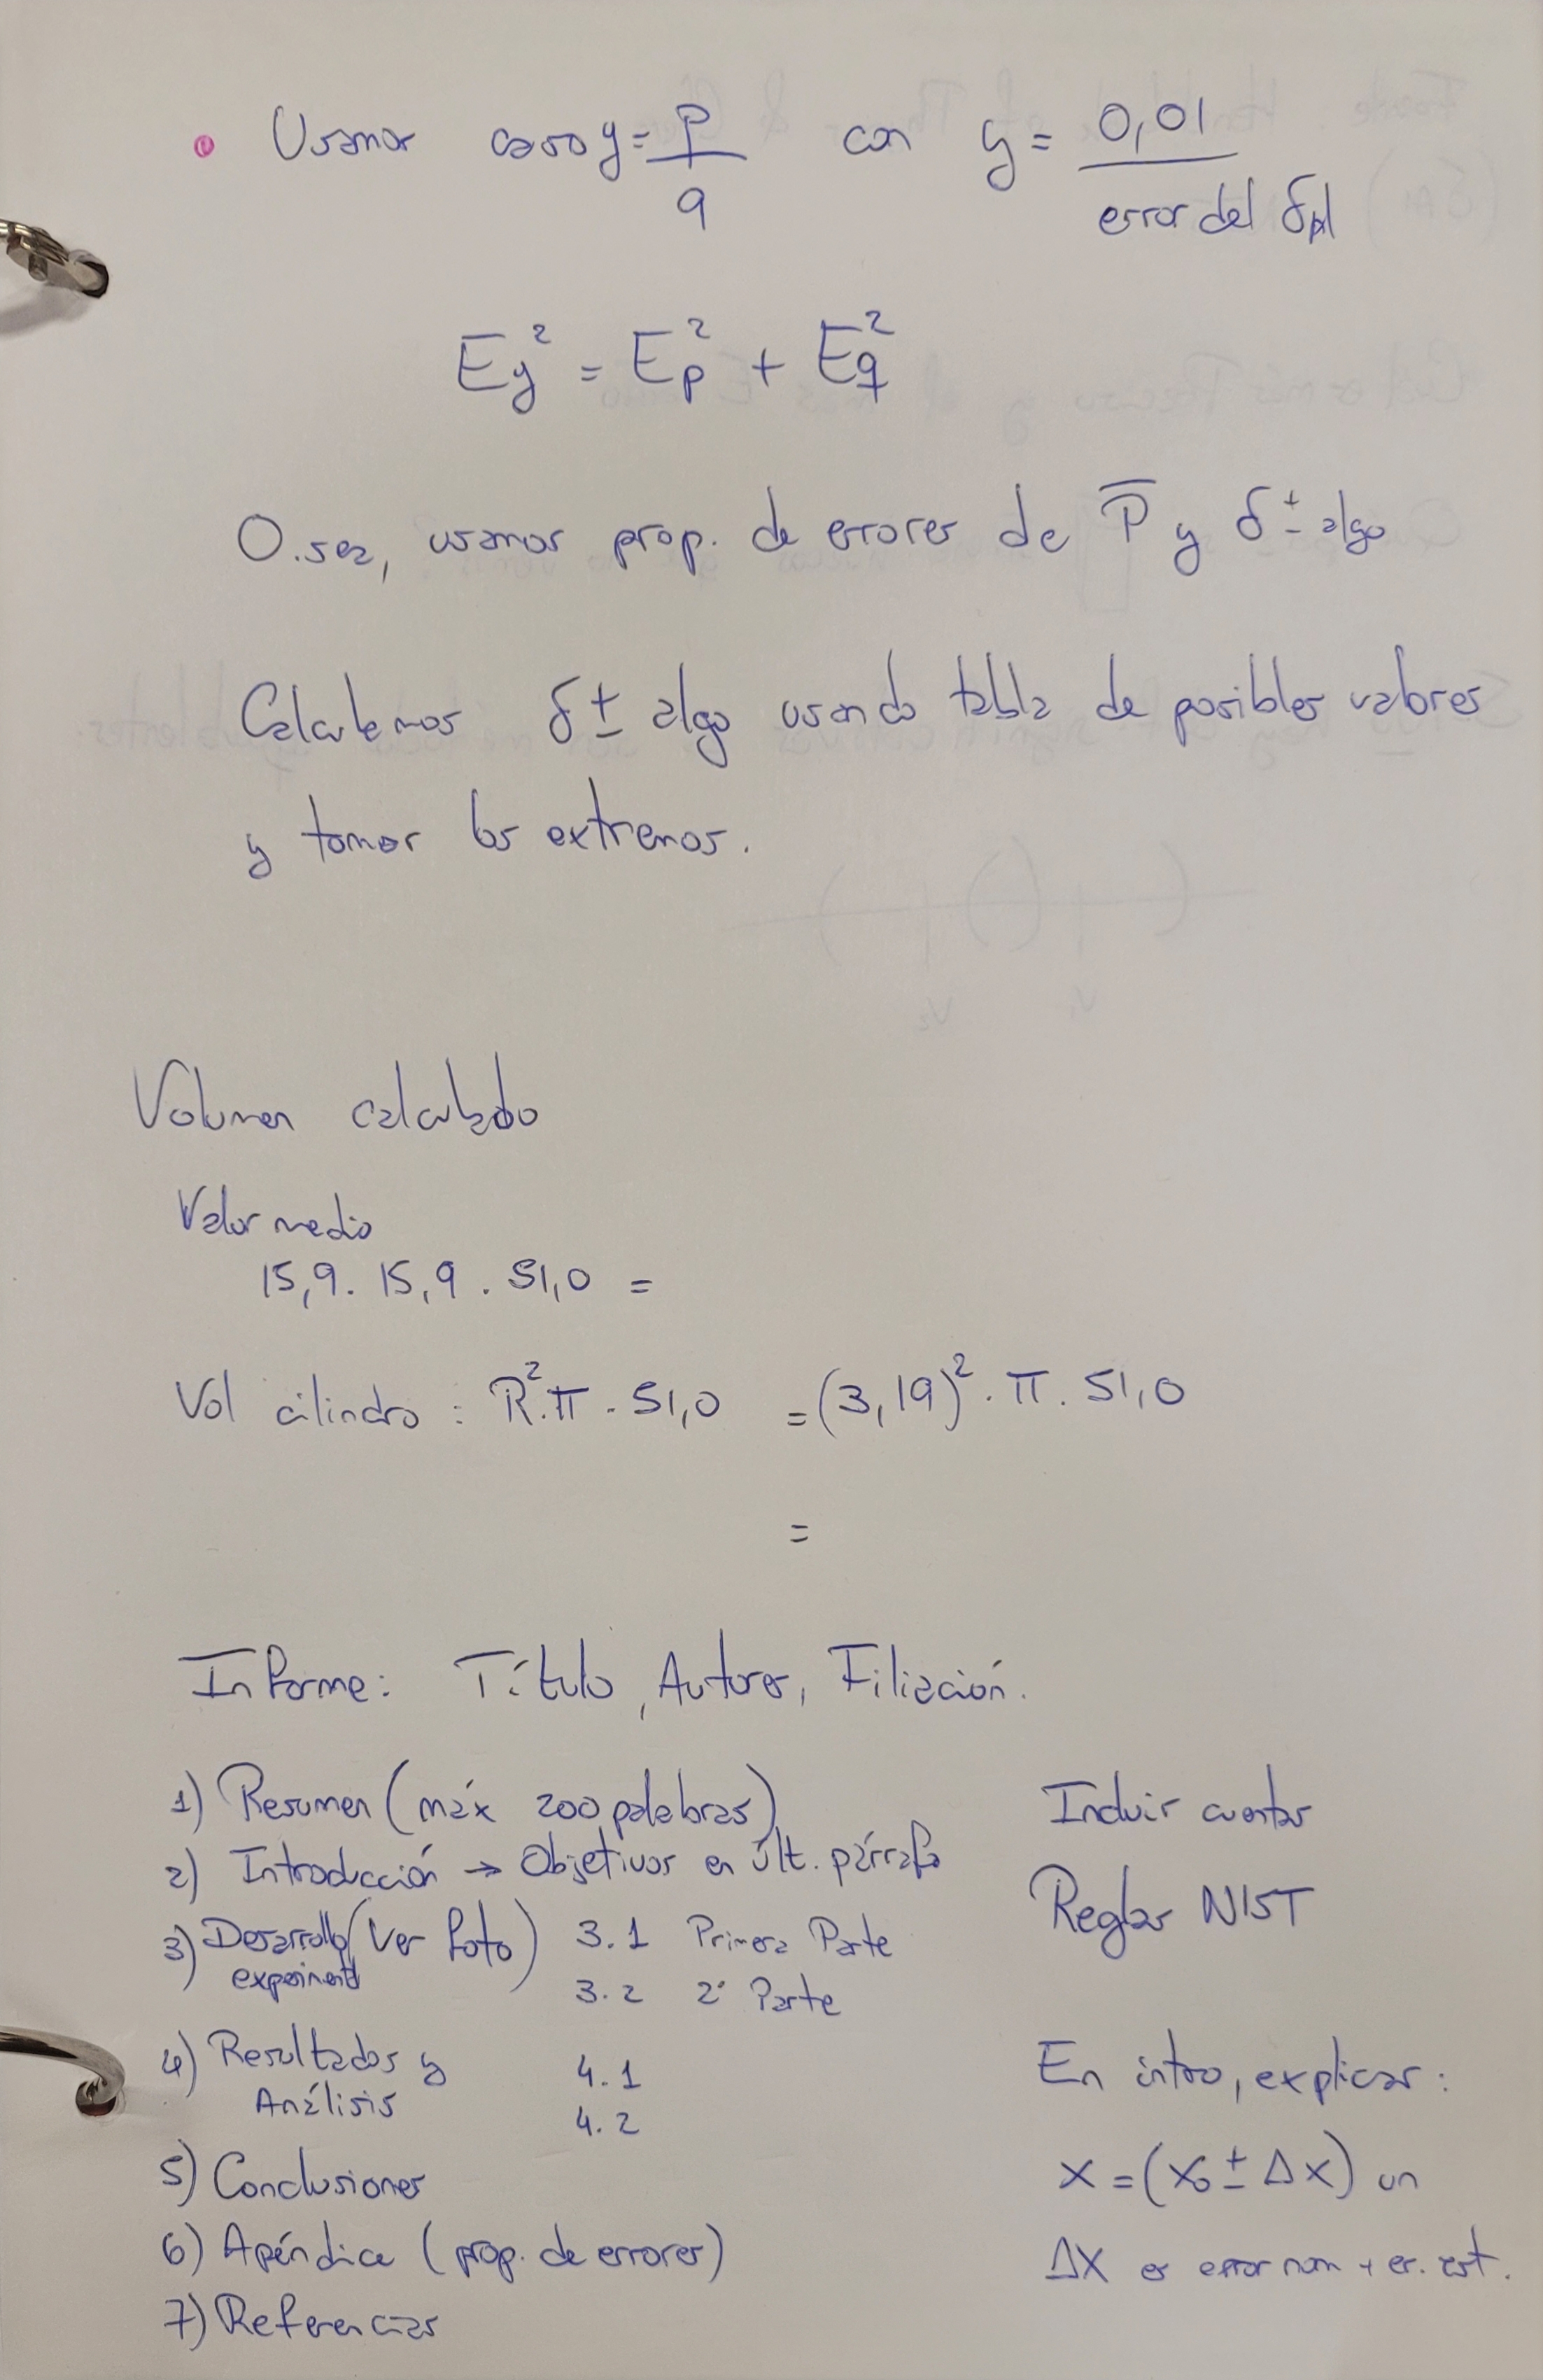 • Usamos caso y = P/q con y = 0,01/error del δpl
Ey² = Ep² + Eq²
O sea, usamos prop. de errores de P̅ y δ ± algo
Calculemos δ ± algo usando tabla de posibles valores
y tomar los extremos.
Volumen calculado
Valor medio
15,9 . 15,9 . 51,0 =
Vol cilindro : R² . π . 51,0 = (3,19)² . π . 51,0
=
Informe: Título, Autores, Filiación.
1) Resumen (máx 200 palabras)
2) Introducción → Objetivos en últ. párrafo
3) Desarrollo (Ver foto) 3.1 Primera Parte
experimental
3.2 2ª Parte
4) Resultados y 4.1
Análisis 4.2
5) Conclusiones
6) Apéndice (prop. de errores)
7) Referencias
Incluir cuentas
Reglas NIST
En intro, explicar:
x = (x₀ ± Δx) un
Δx es error nom + er. est.